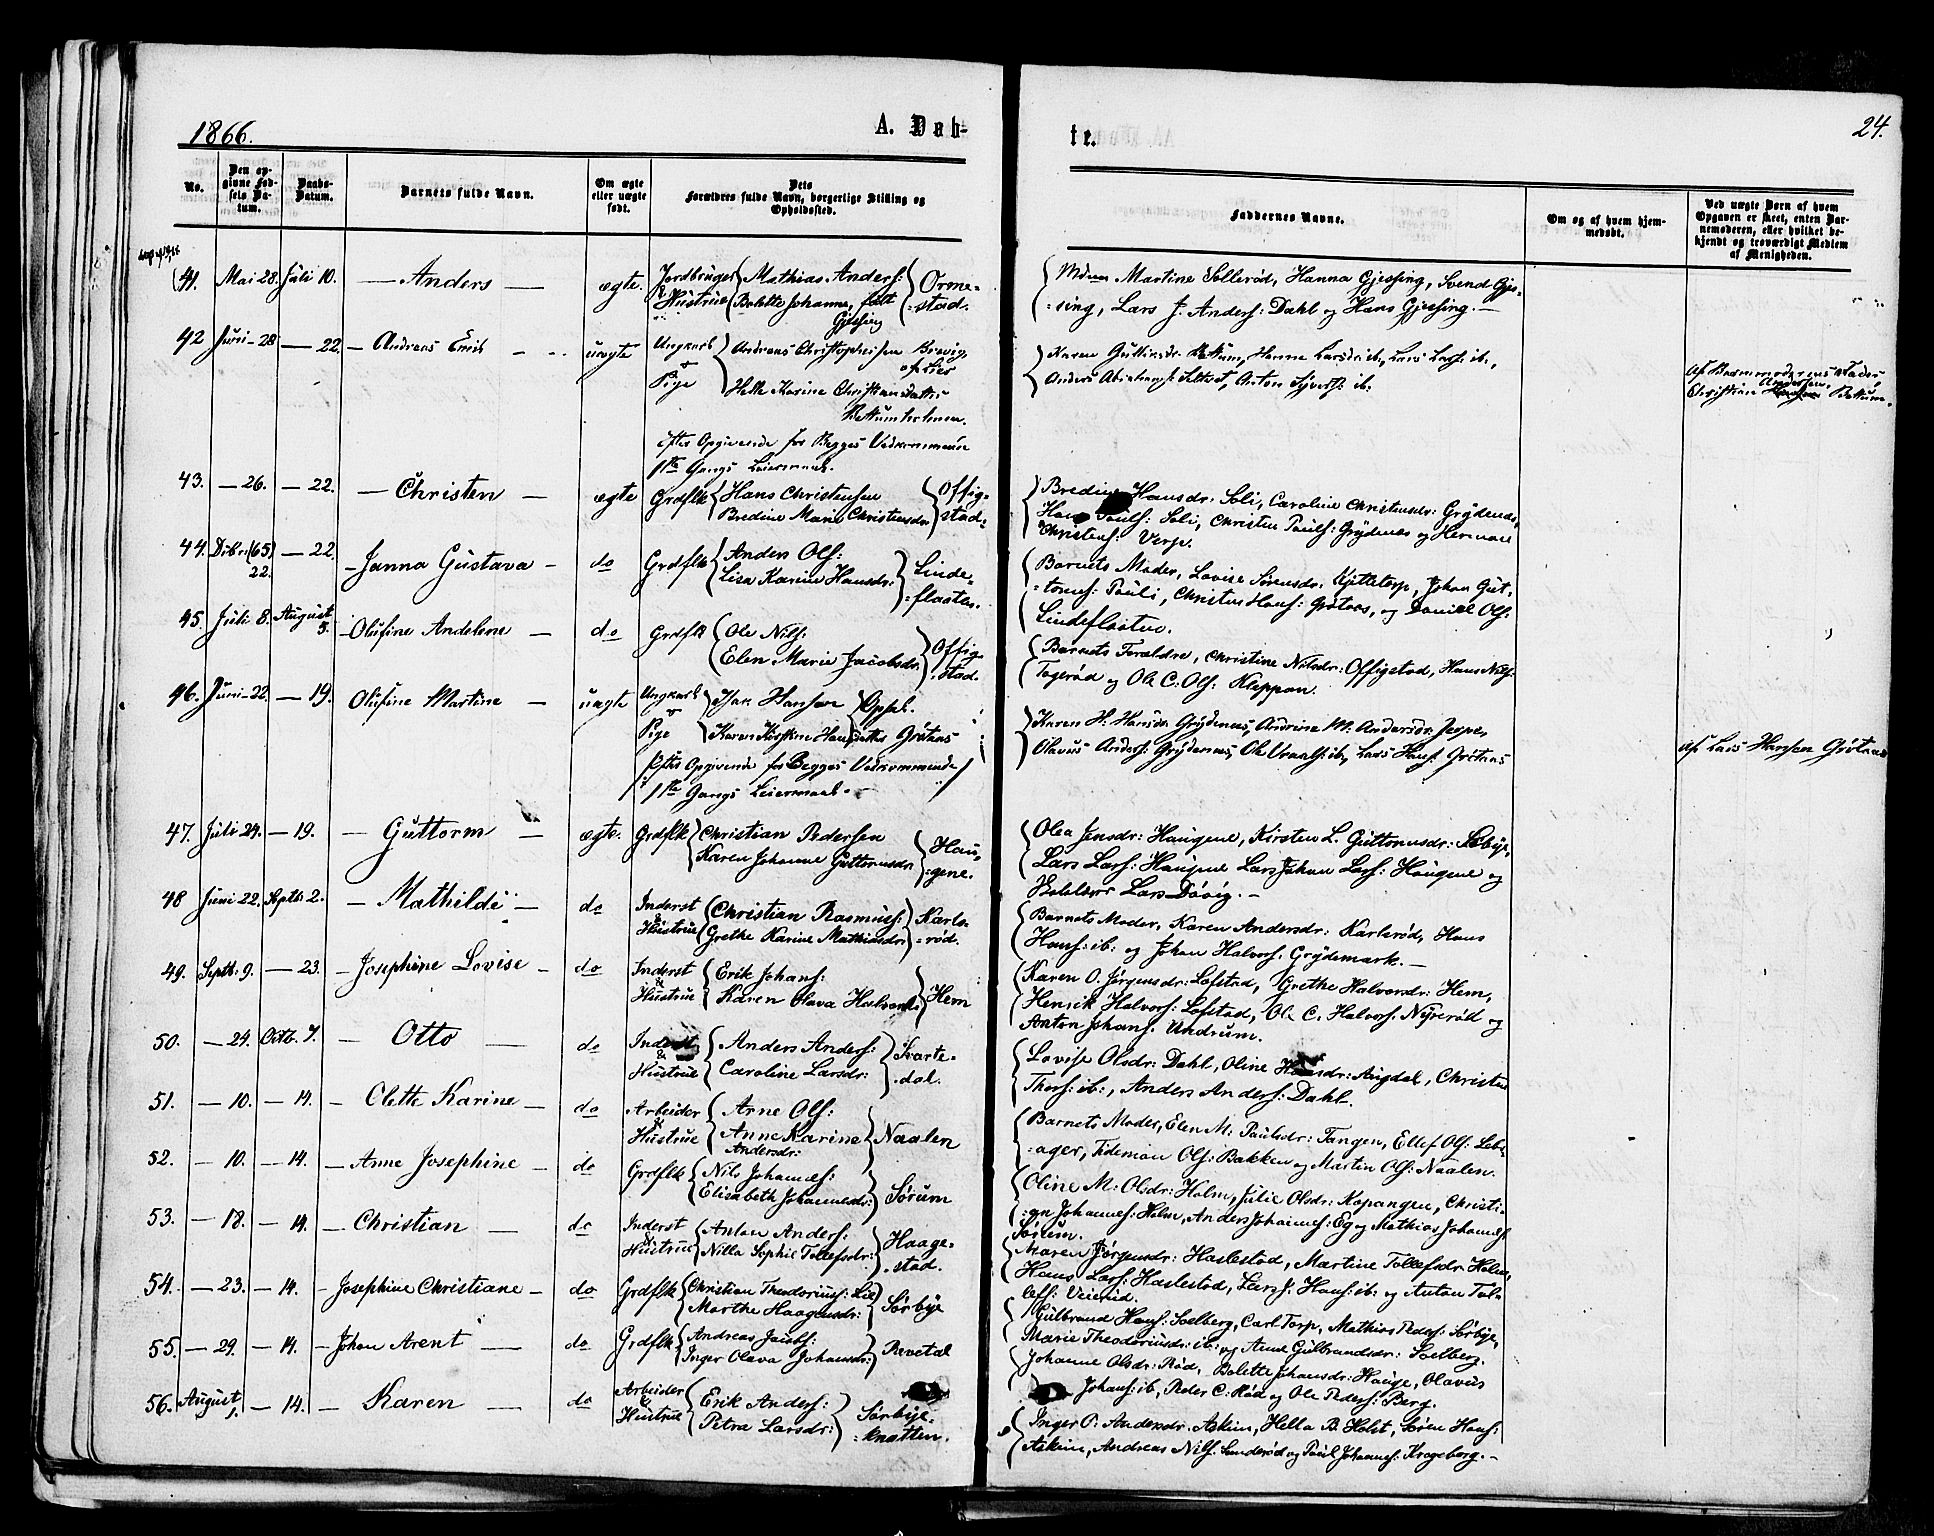 1866.
A. Dåb-
te.
24.
No.
Den op-
givne Fød-
sels Da-
tum.
Daabs-
Datum.
Barnets fulde Navn.
Om ægte
eller uægte
født.
Dets
Forældres fulde Navn, borgerlige Stilling og
Opholdssted.
Faddernes Navne.
Om og af hvem hjem-
medøbt.
Ved uægte Børn af hvem
Opgaven er skeet, enten Bar-
nemoderen, eller hvilket be-
kjendt og troværdigt Medlem
af Menigheden.
41. Mai 28. Juli 10. — Anders — ægte. Jordbruger & Hustrue
Mathias Anders:
Bolette Johanne, født
Gjessing
Orme-
stad.
Martine Sollerød, Hanna Gjessing, Svend Gjes-
sing, Lars J. Anders: Dahl og Hans Gjessing. —
42 Juni 28 — 22. — Andreas Emil — uægte Ungkarl
Pige
Andreas Christophersen
Helle Karine Christiansdatter
Bettumholmen.
Efter Opgivende for Begges Vedkommende
1ste Gangs Leiermaal.
Karen Guttormsdr. Bettum, Hanne Larsdr: ib., Lars Lars: ib.,
Anders Abrahams: , Anton Sjvers: ib.
Af Barnemoderens Fader,
Christian Andersen Bettum.
43. — 26. — 22. — Christen — ægte Grdflk
Hans Christensen
Bredine Marie Christensdr:
Offig-
stad.
Bredine Hansdr: Soli, Caroline Christensdr: Grydenes,
Hans Pauls: Soli, Christen Pauls: Grydenes og Herman
Christens: Verp.
44. Dcbr: (65) 22. — 22. — Janna Gustava — do Grdflk
Anders Ols:
Lisa Karine Hansdr:
Linde-
flaaten.
Barnets Moder, Lovise Sørensdr: Kjittetorp, Johan Gut-
torms: Pauli, Christen Hans: Grøtaas, og Daniel Ols:
Lindeflaaten.
45. Juli 8. August 5. — Olufine Andeline — do Grdflk
Ole Nils:
Elen Marie Jacobsdr.
Offig-
stad.
Barnets Forældre, Christine Nilsdr: Offigstad, Hans Nils:
Togerød og Ole C. Ols: Kleppan.
46. Juni 22 — 19. Olufine Martine — uægte Ungkarl
Pige
Isak Hansen Oppal.
Karen Kirstine Hansdatter Grøtaas
Efter Opgivende for Begges Vedkommende
1ste Gangs Leiermaal. —
Karen H. Hansdr. Grydenes, Andrine M. Andersdr.
Olavus Anders: Grydenes, Ole ib., Lars Hans: Grøtaas
Af Lars Hansen Grøtaas
47. Juli 24. — 19. — Guttorm — ægte. Grdflk
Christian Pedersen
Karen Johanne Guttormsdr.
Hau-
gene.
Olea Jensdr: Haugene, Kirsten L. Guttormsdr: Sørbye,
Lars Lars: Haugene Lars Johan Lars: Haugene og
Lars Døvig. —
48 Juni 22. Septbr 2. — Mathilde — do Inderst & Hustrue
Christian Rasmus:
Grethe Karine Mathiasdr.
Karls-
rød.
Barnets Moder, Karen Andersdr: Karlsrød, Hans
Hans: ib: og Johan Halvors: Grydemark. —
49. Septb. 9. — 23. — Josephine Lovise — do Inderst & Hustrue
Erik Johans:
Karen Olava Halvorsdr
Hem
Karen O. Jørgensdr: Løfstad, Grethe Halvorsdr: Hem,
Henrik Halvors: Løfstad, Ole C. Halvors. Nyrerød og
Anton Johans. Undrum.
50. — 24. Octb. 7. — Otto — do Inderst & Hustrue
Anders Anders:
Caroline Larsdr:
Svarte-
dal.
Lovise Olsdr: Dahl, Oline Hansdr: Augdal, Christen
Thors: ib:, Anders Anders: Dahl.
51. — 10. — 14. — Olette Karine — do Arbeider & Hustrue
Arne Ols:
Anne Karine
Andersdr:
Naalen
Barnets Moder, Elen M: Paulsdr: Tangen, Ellef Ols: Leb-
ager, Tideman Ols: Bakken og Martin Ols: Naalen.
52. — 10. — 14. — Anne Josephine — do Grdflk
Nils Johannes:
Elisabeth Johannesdr:
Sørum
Oline M: Olsdr: Holm, Julie Olsdr: Kopangen, Christi-
an Johannes: Holm, Anders Johannes: Eg og Mathias Johannes:
Sørum.
53. — 18. — 14. — Christian — do Inderst & Hustrue
Anton Anders:
Nilla Sophie Tollefsdr:
Haage-
stad.
Maren Jørgensdr: Haslestad, Martine Tollefsdr: Holm,
Hans Lars: Haslestad, Lars J. Hans: ib: og Anton Tol-
lefs: Veierød.
54. — 23. — 14. — Josephine Christiane — do Grdflk
Christian Theodorius: Lie
Marthe Haagensdr:
Sørbye
Gulbrand Hans: Solberg, Carl Torp, Mathias Peders: Sørbye,
Marie Theodoriusdr: ib: og Anne Gulbrandsdr: Solberg.
55. — 29. — 14. — Johan Arent — do Grdflk
Andreas Jacobs:
Inger Olava Johansdr:
Revetal
Johanne Olsdr: Rød, Bolette Johansdr: Hauge, Olavus
Johans: ib, Peder C: Rød og Ole Peders: Berg.
56. August 1. — 14. — Karen — do Arbeider & Hustrue
Erik Anders:
Petra Larsdr:
Sørbye-
knatten.
Inger P. Andersdr: Askim, Hella B. Holst, Søren Hans:
Askim, Andreas Nils. Sunderød og Paul Johannes: Krageberg. —